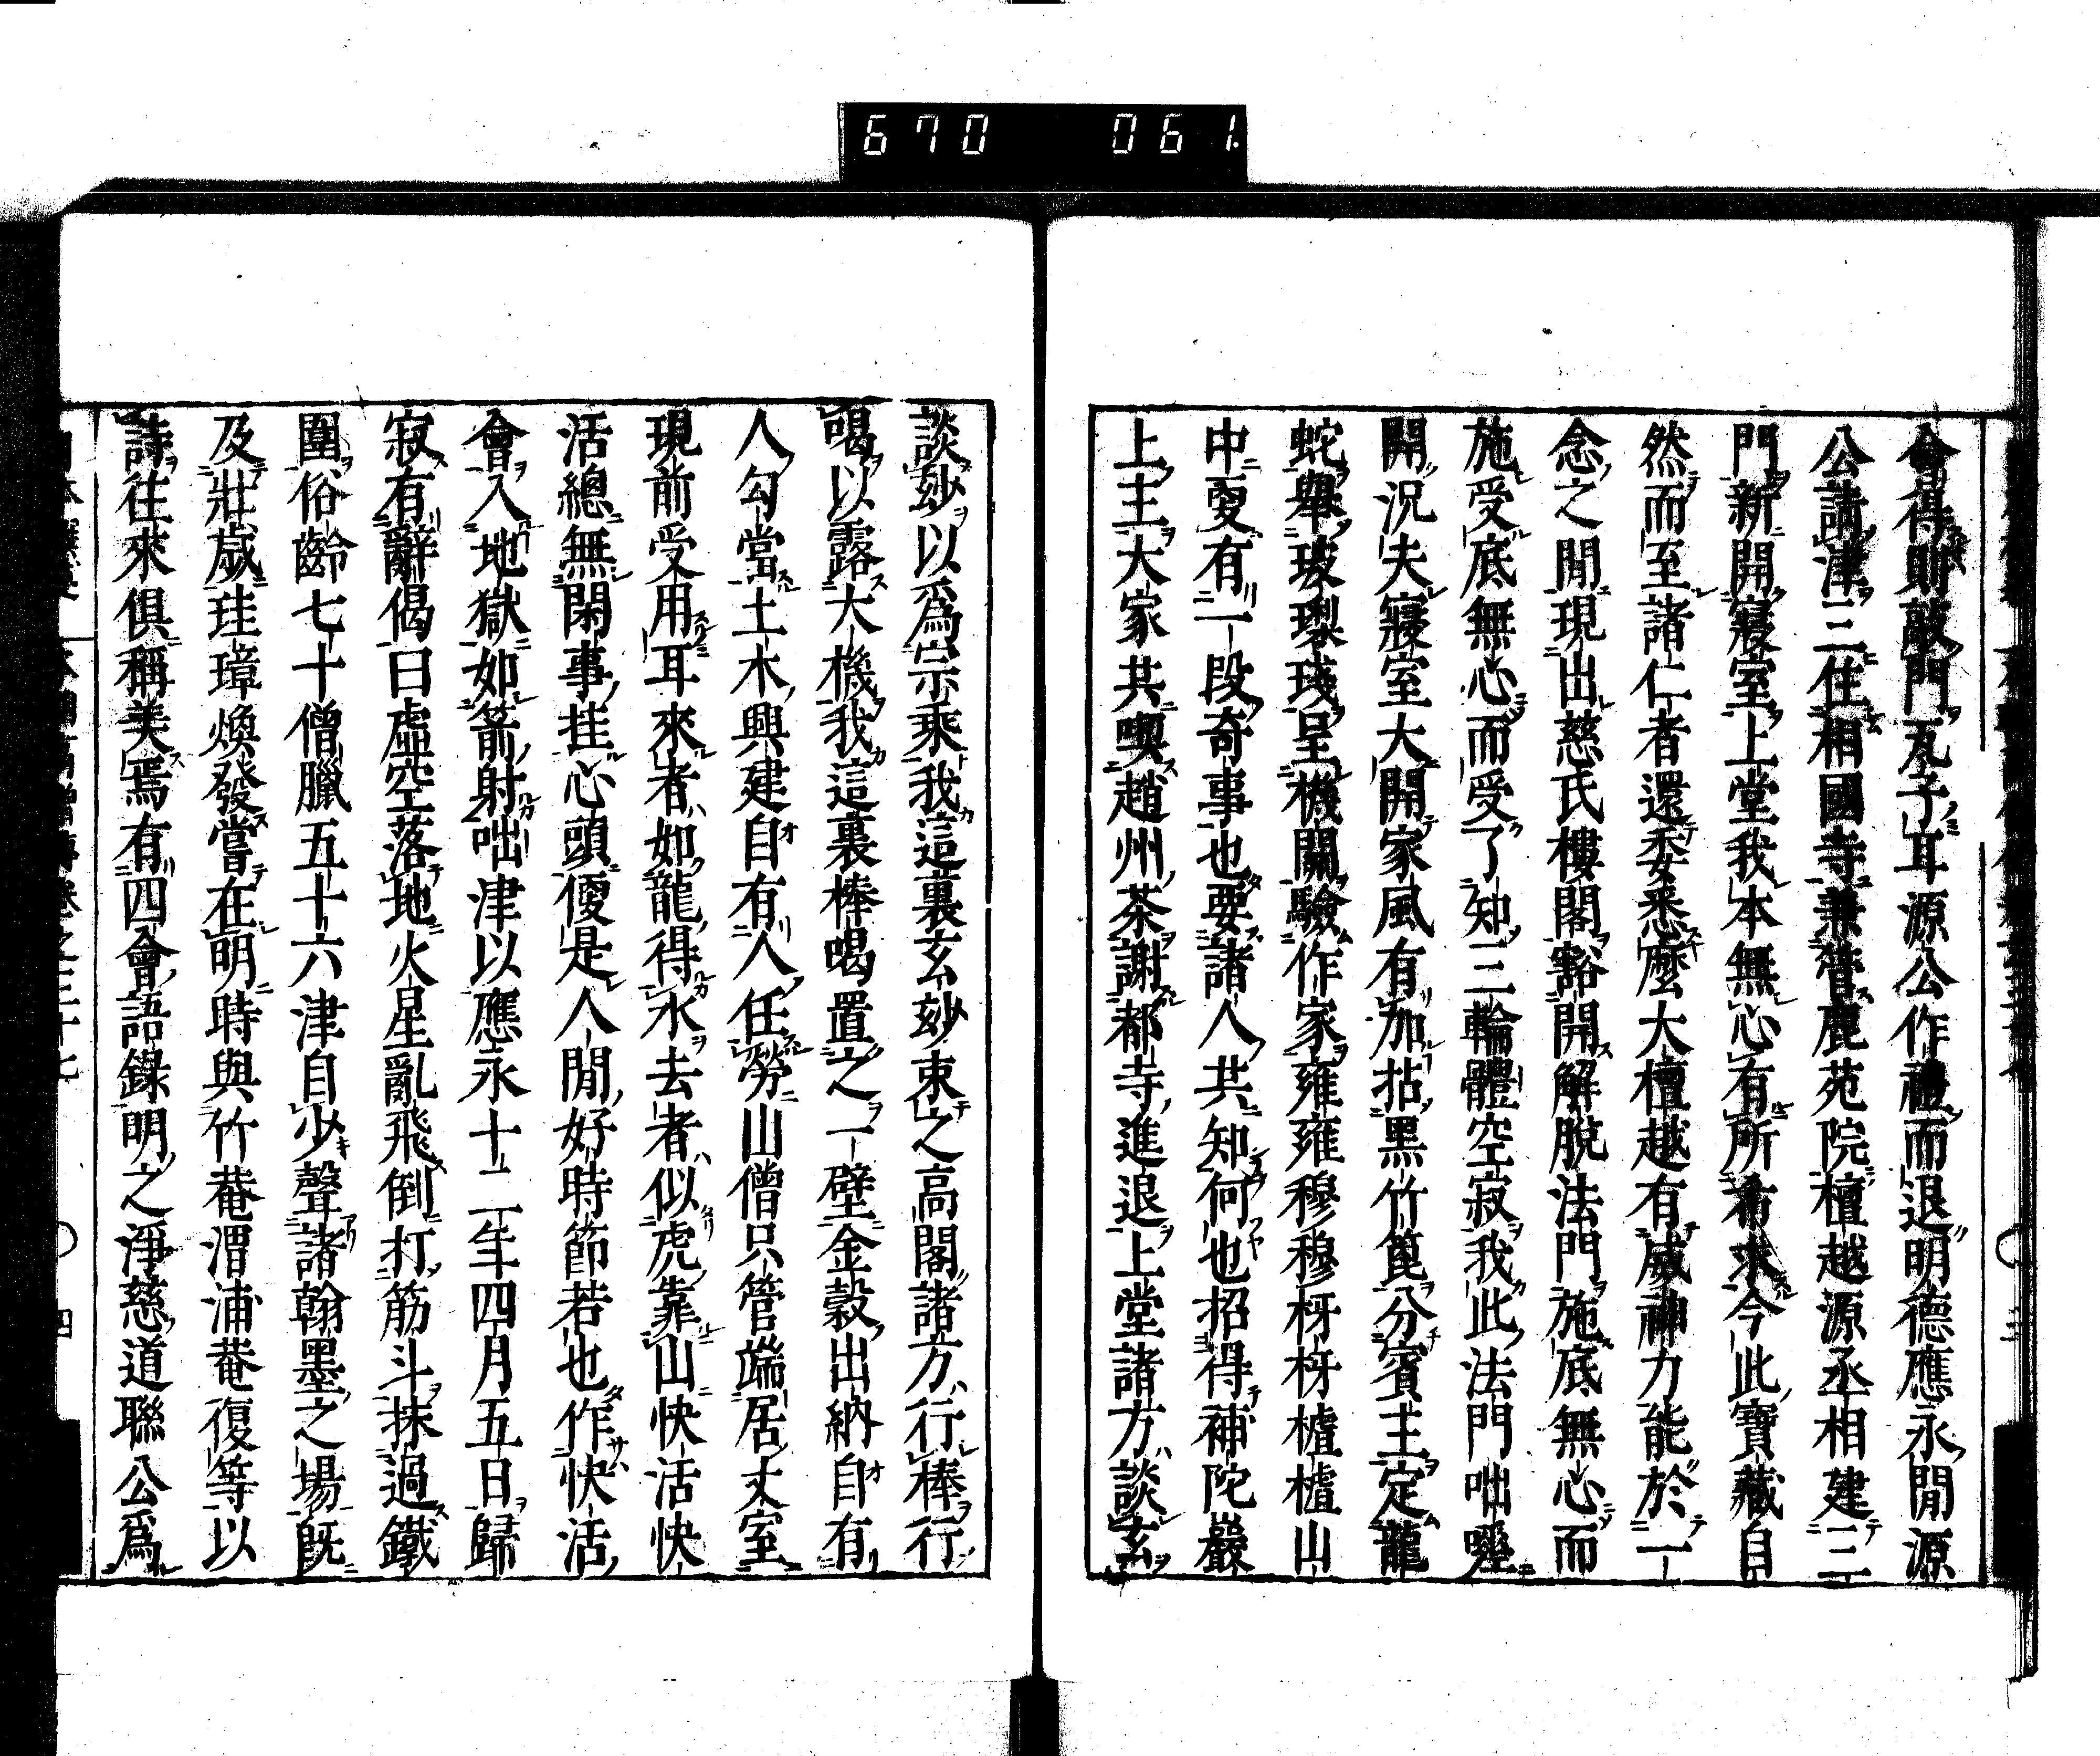 670 061
會得則敲門瓦子耳源公作禮而退明德應永閒源
公請津三住相國寺兼管鹿苑院檀越源丞相建三
門新開寢室上堂我本無心有所希求今此寶藏自
然而至諸仁者還委悉麼大檀越有威神力能於一
念之閒現出慈氏樓閣豁開解脫法門施底無心而
施受底無心而受了知三輪體空寂我此法門咄囈
開況夫寢室大開家風有加拈黑竹篦分賓主定龍
蛇舉玻瓈琖呈機關驗作家雍雍穆穆枒枒樝樝山
中更有一段奇事也要諸人共知何也招得補陀巖
上主大家共喫趙州茶謝都寺進退上堂諸方談玄
談玅以爲宗乘我這裏玄玅束之高閣諸方行棒行
喝以露大機我這裏棒喝置之一壁金穀出納自有
人勾當土木興建自有人任勞山僧只管端居丈室
現前受用耳來者如龍得水去者似虎靠山快活快
活總無閑事挂心頭便是人閒好時節若也作快活
會入地獄如箭射咄津以應永十二年四月五日歸
寂有辭偈曰虛空落地火星亂飛倒打筋斗抹過鐵
圍俗齡七十僧臘五十六津自少聲諸翰墨之場既
及壯歲珪璋煥發嘗在明時與竹菴渭浦菴復等以
詩往來俱稱美焉有四會語錄明之淨慈道聯公爲